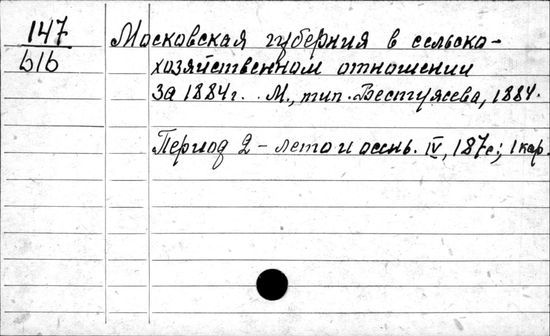 147
616
Московская губерния в сельско-
хозяйственном отношении
за 1884г. М., тип. Вестуясева, 1884.
Период 2 - лето и осень. IV, 187с; 1 кар.